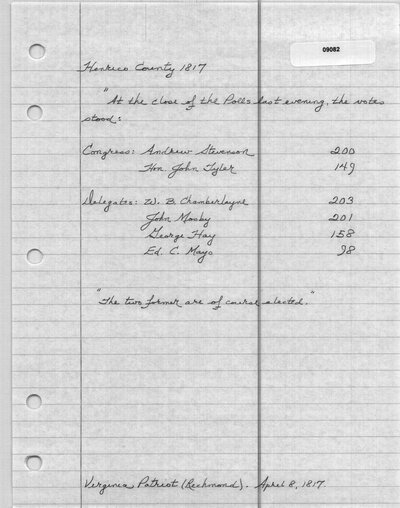 09082
Henrico County 1817
"At the close of the Polls last evening, the votes
stood:
Congress: Andrew Stevenson 200
Hon. John Tyler 149
Delegates: W. B. Chamberlayne 203
John Mosby 201
George Hay 158
Ed. C. Mayo 98
"The two former are of course elected."
Virginia Patriot (Richmond). April 8, 1817.